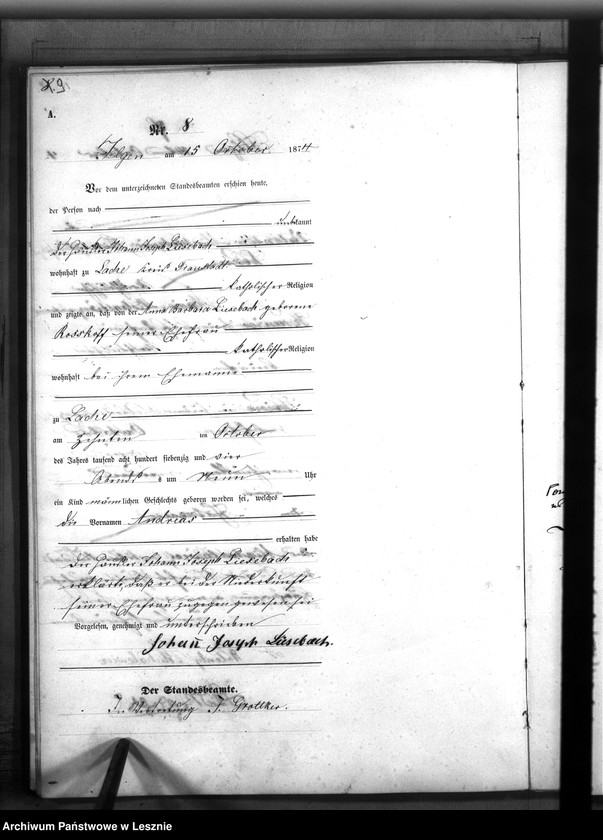 A.
Nr. 8
Ilgen am 15 October 1874
Vor dem unterzeichneten Standesbeamten erschien heute,
der Person nach
unbekannt
der Häusler Johann Joseph Liesebach
wohnhaft zu Lache Kreis Fraustadt
katholischer Religion
und zeigte an, daß von der Anna Barbara Liesebach geborene
Rosskopf seiner Ehefrau
katholischer Religion
wohnhaft bei ihrem Ehemanne
zu Lache
am zehnten ten October
des Jahres tausend acht hundert siebenzig und vier
Abends s um Neun Uhr
ein Kind männlichen Geschlechts geboren worden sei, welches
die Vornamen Andreas
erhalten habe
Der Häusler Johann Joseph Liesebach
erklärte, daß er bei der Niederkunft
seiner Ehefrau zugegen gewesen sei
Vorgelesen, genehmigt und unterschrieben
Johann Joseph Liesebach.
Der Standesbeamte.
In Vertretung
Archiwum Państwowe w Lesznie